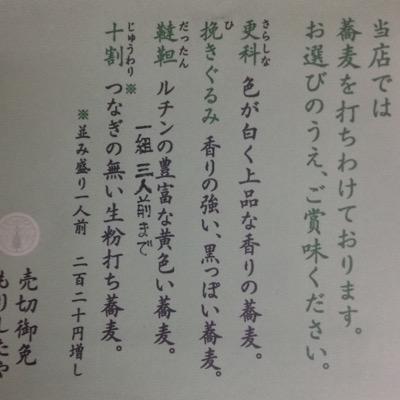 当店では
蕎麦を打ちわけております。
お選びのうえ、ご賞味ください。
さらしな
更科 色が白く上品な香りの蕎麦。
ひ
挽きぐるみ 香りの強い、黒っぽい蕎麦。
だったん
韃靼 ルチンの豊富な黄色い蕎麦。
一組 三人前まで
じゅうわり
十割※ つなぎの無い生粉打ち蕎麦。
※並み盛り一人前 二百二十円増し
売切御免
もりしたや